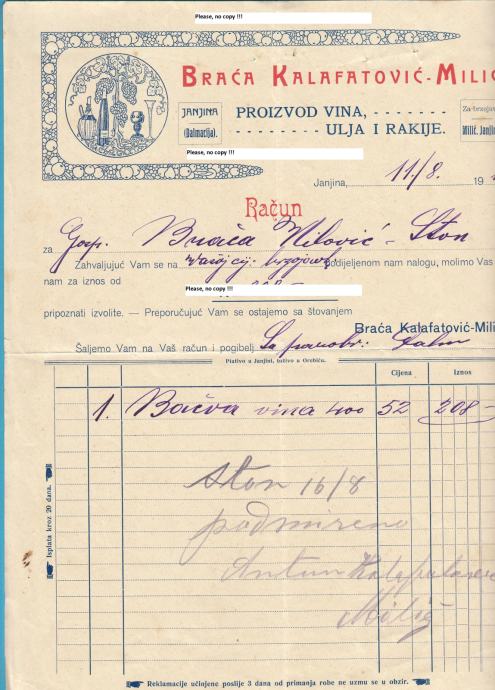 Please, no copy !!!
BRAĆA KALAFATOVIĆ-MILIĆ
JANJINA
(Dalmacija).
PROIZVOD VINA,
ULJA I RAKIJE.
Za brzojav
Milić, Janjin
Please, no copy !!!
Janjina, 11/8. 19
Račun
za Gosp. Braća Milović - Ston
Zahvaljujuć Vam se na podijeljenom nam nalogu, molimo Vas
nam za iznos od 208-
Please, no copy !!!
pripoznati izvolite. — Preporučujuć Vam se ostajemo sa štovanjem
Braća Kalafatović-Mili
Šaljemo Vam na Vaš račun i pogibelj Sa parobr: Dalm
Plativo u Janjini, tuživo u Orebiću.
Cijena Iznos
1. Bačva vina 400 52 208-
Ston 16/8
podmireno
Antun Kalafatović
Milić
Isplata kroz 20 dana.
Reklamacije učinjene poslije 3 dana od primanja robe ne uzmu se u obzir.